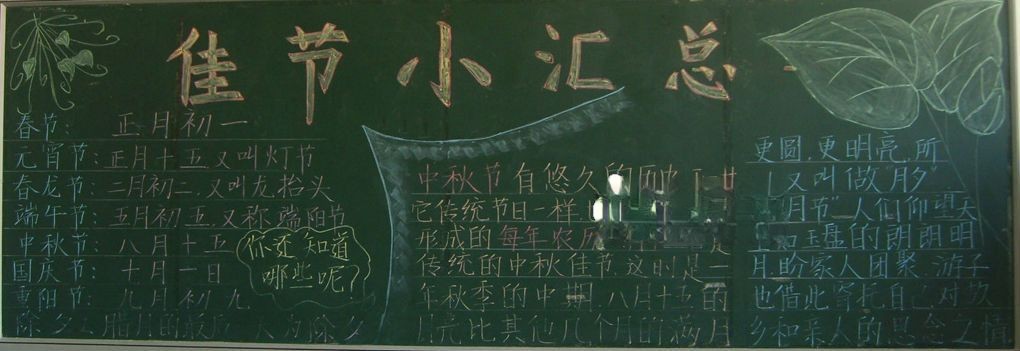 佳节小汇总
春节: 正月初一
元宵节:正月十五,又叫灯节
春龙节:二月初二,又叫龙抬头
端午节:五月初五,又称端阳节
中秋节:八月十五
国庆节:十月一日
重阳节:九月初九
除夕:腊月的最后一天为除夕
你还知道
哪些呢?
中秋节自悠久的
它传统节日一样
形成的每年农历
传统的中秋佳节,这时是一
年秋季的中期,八月十五的
月亮比其他几个月的满月
更圆,更明亮,所
又叫做“月夕”
月节”人们仰望天
玉盘的朗朗明
月,盼家人团聚.游子
也借此寄托自己对故
乡和亲人的思念之情